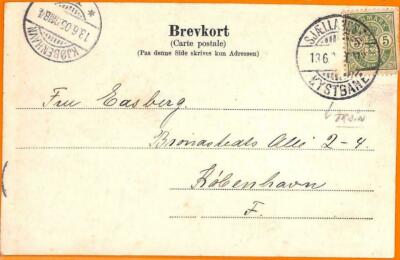 KJØBENHAVN
13.6.03
Brevkort
(Carte postale)
(Paa denne Side skrives kun Adressen)
13 6
KYSTBANE
5 5
Fru Easberg.
Brønstedts Allé 2-4.
København
F.